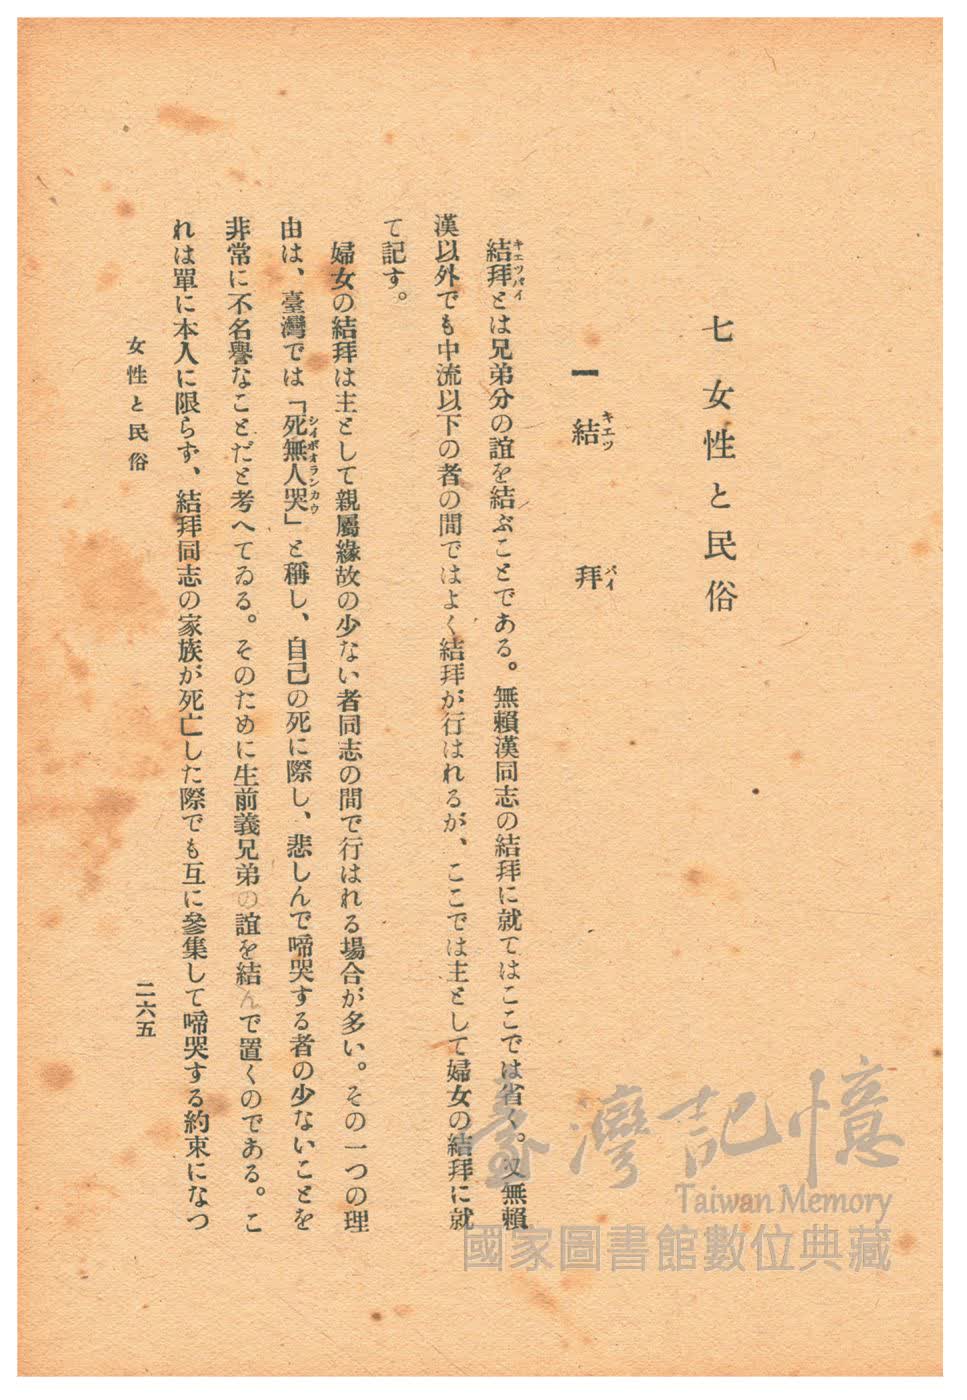 七 女性と民俗
一 結拜
キエツ パイ
結拜とは兄弟分の誼を結ぶことである。無賴漢同志の結拜に就てはここでは省く。又無賴
キエツパイ
漢以外でも中流以下の者の間ではよく結拜が行はれるが、ここでは主として婦女の結拜に就
て記す。
婦女の結拜は主として親屬緣故の少ない者同志の間で行はれる場合が多い。その一つの理
由は、臺灣では「死無人哭」と稱し、自己の死に際し、悲しんで啼哭する者の少ないことを
シイボオランカウ
非常に不名譽なことだと考へてゐる。そのために生前義兄弟の誼を結んで置くのである。こ
れは單に本人に限らず、結拜同志の家族が死亡した際でも互に參集して啼哭する約束になつ
女性と民俗
二六五
臺灣記憶
Taiwan Memory
國家圖書館數位典藏